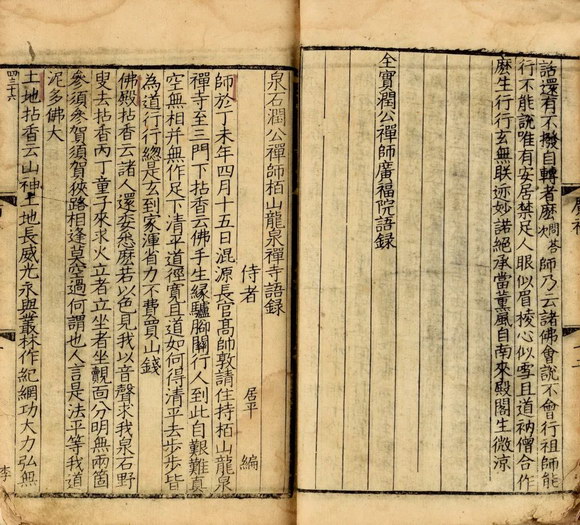 話還有不撥自轉者麼問答不次師乃云諸佛會說不會行祖師能
行不能說唯有安居禁足人眼似眉棱心似雪且道衲僧合作
麼生行行玄無朕迹妙諾絕承當薰風自南來殿閣生微涼
全寶潤公禪師廣福院語錄
泉石潤公禪師栢山龍泉禪寺語錄
侍者 居平 編
師於丁未年四月十五日混源長官髙師敦請住持栢山龍泉
禪寺至三門下拈香云佛手生緣驢脚關行人到此自艱難真
空無相并無作足下清平道徑寬且道如何得清平去步步皆
為道行行總是玄到家渾省力不費買山錢
佛殿拈香云諸人還委悉麼若以色見我以音聲求我泉石野
叟去拈香丙丁童子來求火立者立坐者坐覿面分明無兩箇
參須參賀須賀狹路相逢莫空過何謂也人言是法平等我道
泥多佛大
土地拈香云山神土地長威光永與叢林作紀綱功大力弘無
四二十六
李